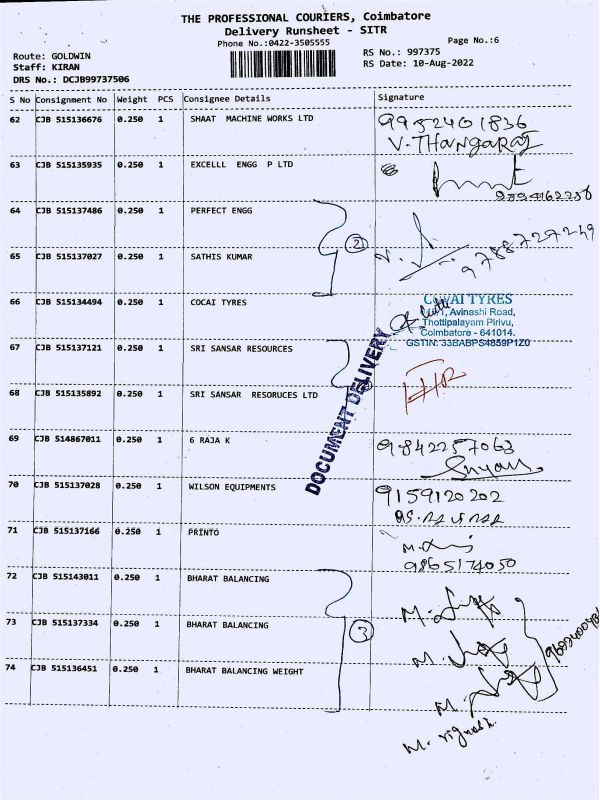 THE PROFESSIONAL COURIERS, Coimbatore
Delivery Runsheet - SITR
Phone No.:0422-3505555
Page No.:6
Route: GOLDWIN
Staff: KIRAN
DRS No.: DCJB99737506
RS No.: 997375
RS Date: 10-Aug-2022
S No Consignment No Weight PCS Consignee Details Signature
62 CJB 515136676 0.250 1 SHAAT MACHINE WORKS LTD 9952401836
V.THANGARAJ
63 CJB 515135935 0.250 1 EXCELLL ENGG P LTD
9894162236
64 CJB 515137486 0.250 1 PERFECT ENGG
2
9788727249
65 CJB 515137027 0.250 1 SATHIS KUMAR
66 CJB 515134494 0.250 1 COCAI TYRES
COVAI TYRES
Avinashi Road,
Thottipalayam Pirivu,
Coimbatore - 641014.
GSTIN: 33BABPS4859P1Z0
DOCUMENT DELIVERY
67 CJB 515137121 0.250 1 SRI SANSAR RESOURCES
68 CJB 515135892 0.250 1 SRI SANSAR RESORUCES LTD
69 CJB 514867011 0.250 1 6 RAJA K 9842257063
70 CJB 515137028 0.250 1 WILSON EQUIPMENTS 9159120202
71 CJB 515137166 0.250 1 PRINTO
9865174050
72 CJB 515143011 0.250 1 BHARAT BALANCING
73 CJB 515137334 0.250 1 BHARAT BALANCING
3
74 CJB 515136451 0.250 1 BHARAT BALANCING WEIGHT
M. vignesh.